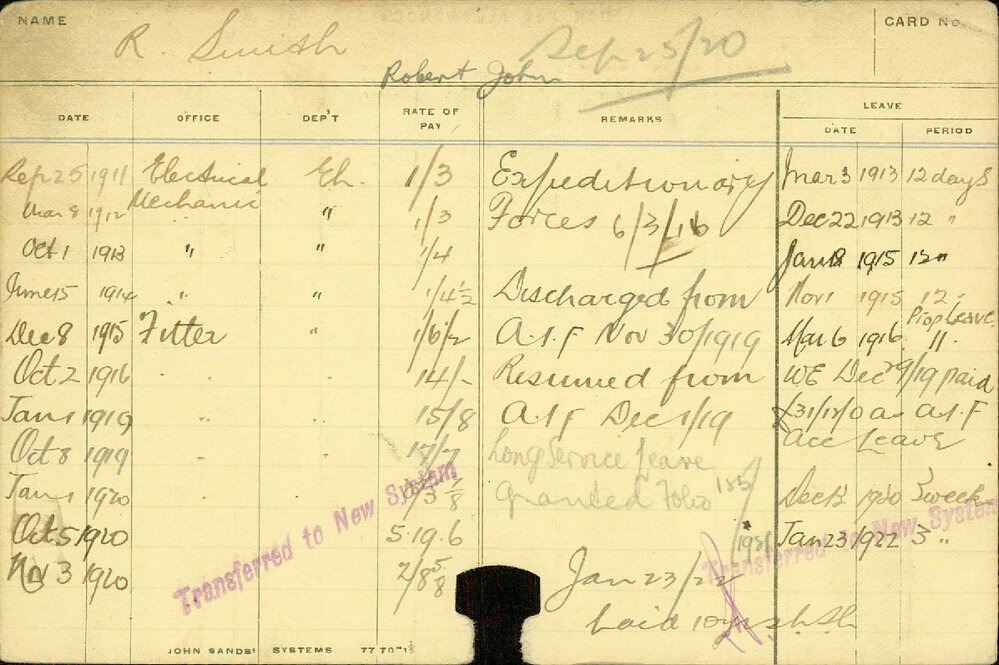 NAME
CARD NO.
R. Smith
Sep 25/20
Robert John
DATE OFFICE DEP'T RATE OF PAY REMARKS LEAVE
DATE PERIOD
Sep 25 1911 Electrical Eh. 1/3 Expeditionary Mar 3 1913 12 days
Mar 8 1912 Mechanic " 1/3 Forces 6/3/16 Dec 22 1913 12 "
Oct 1 1913 " " 1/4 Jan 8 1915 12 "
June 15 1914 " " 1/4½ Discharged from Nov 1 1915 12
Dec 8 1915 Fitter " 1/6½ A.I.F Nov 30/1919 Mar 6 1916 Prop Leave 11.
Oct 2 1916 14/- Resumed from WE Dec 29/19 paid
Jan 1 1919 15/8 A.I.F Dec 1/19 £31/17/0 as A.I.F
Oct 8 1919 17/7 Long Service Leave acc Leave
Jan 1 1920 Granted Folio Dec 13 1920 3 week
Oct 5 1920 5.19.6 1921 Jan 23/1922 3 "
Nov 3 1920 2/8⅝ Jan 23/22
Transferred to New System
Transferred to New System
JOHN SANDS' SYSTEMS